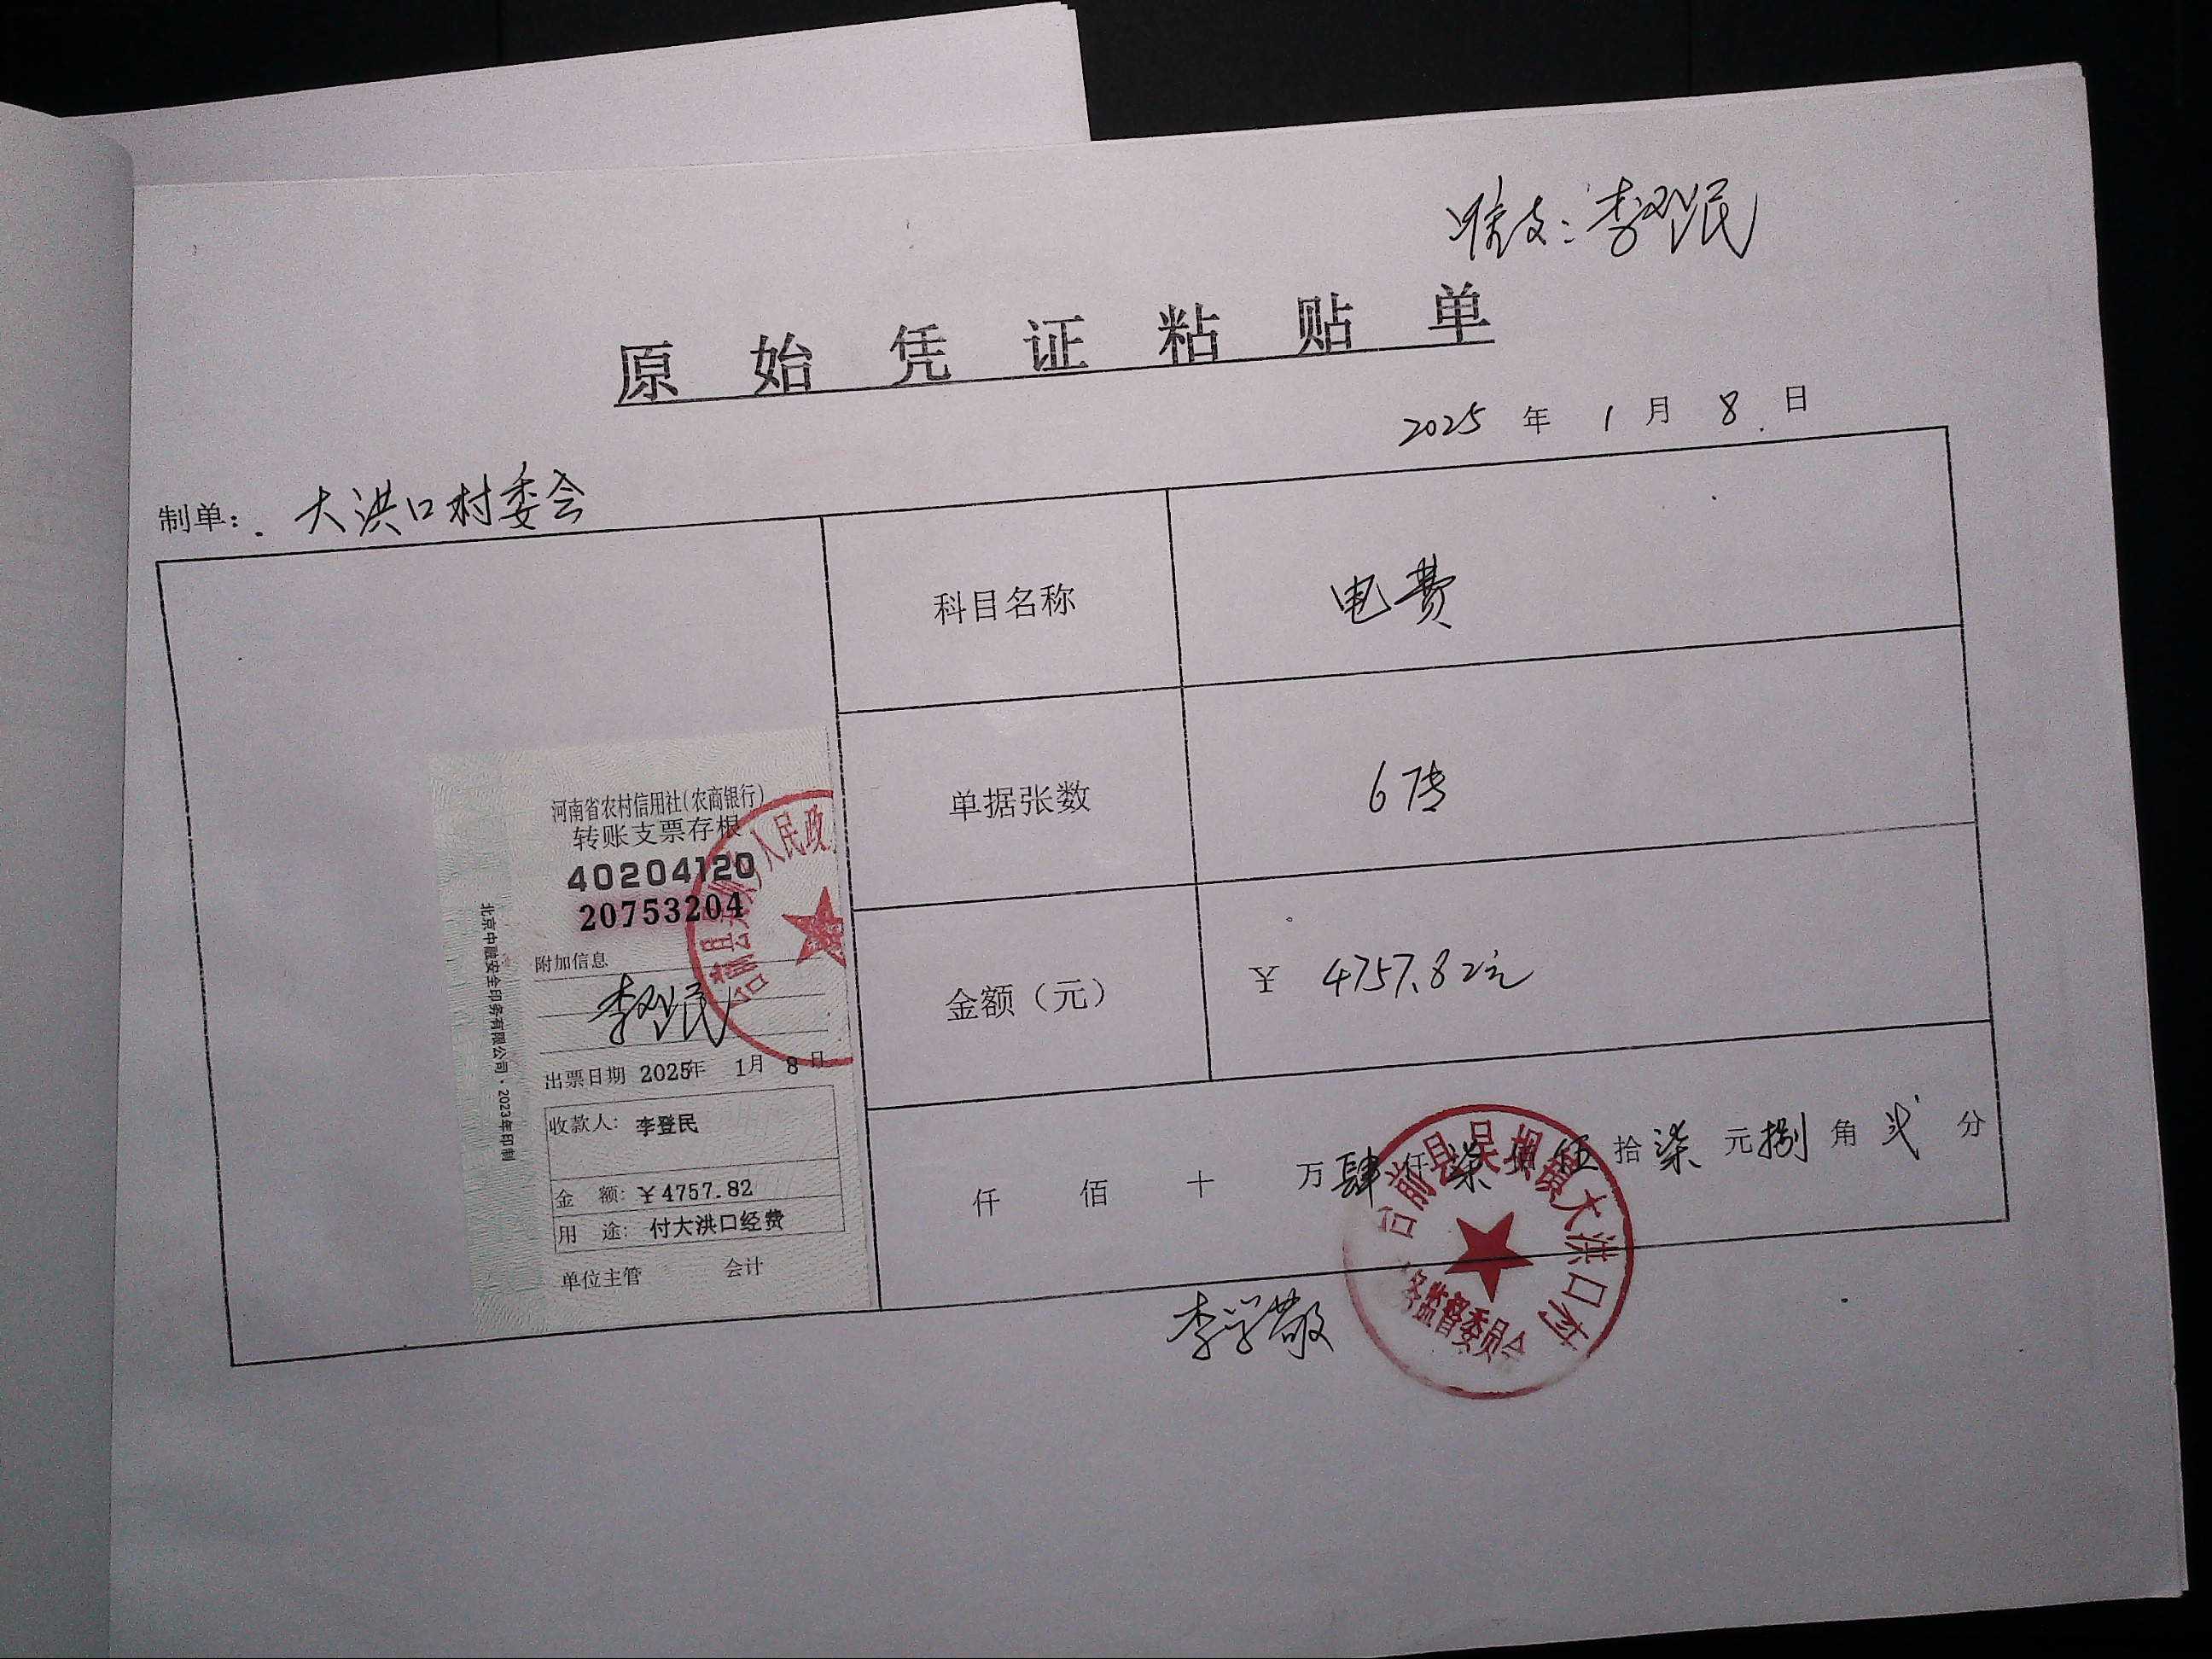 情支：李登民
原始凭证粘贴单
2025年1月8日
制单：大洪口村委会
科目名称 电费
单据张数 6张
金额（元） ¥ 4757.82元
仟 佰 十 万肆仟柒佰伍拾柒元捌角贰分
李学敬
台前县吴坝镇大洪口村
务监督委员会
河南省农村信用社(农商银行)
转账支票存根
40204120
20753204
附加信息
李登民
出票日期 2025年 1月 8日
收款人: 李登民
金 额: ¥4757.82
用 途: 付大洪口经费
单位主管 会计
北京中融安全印务有限公司·2023年印制
人民政
台前县